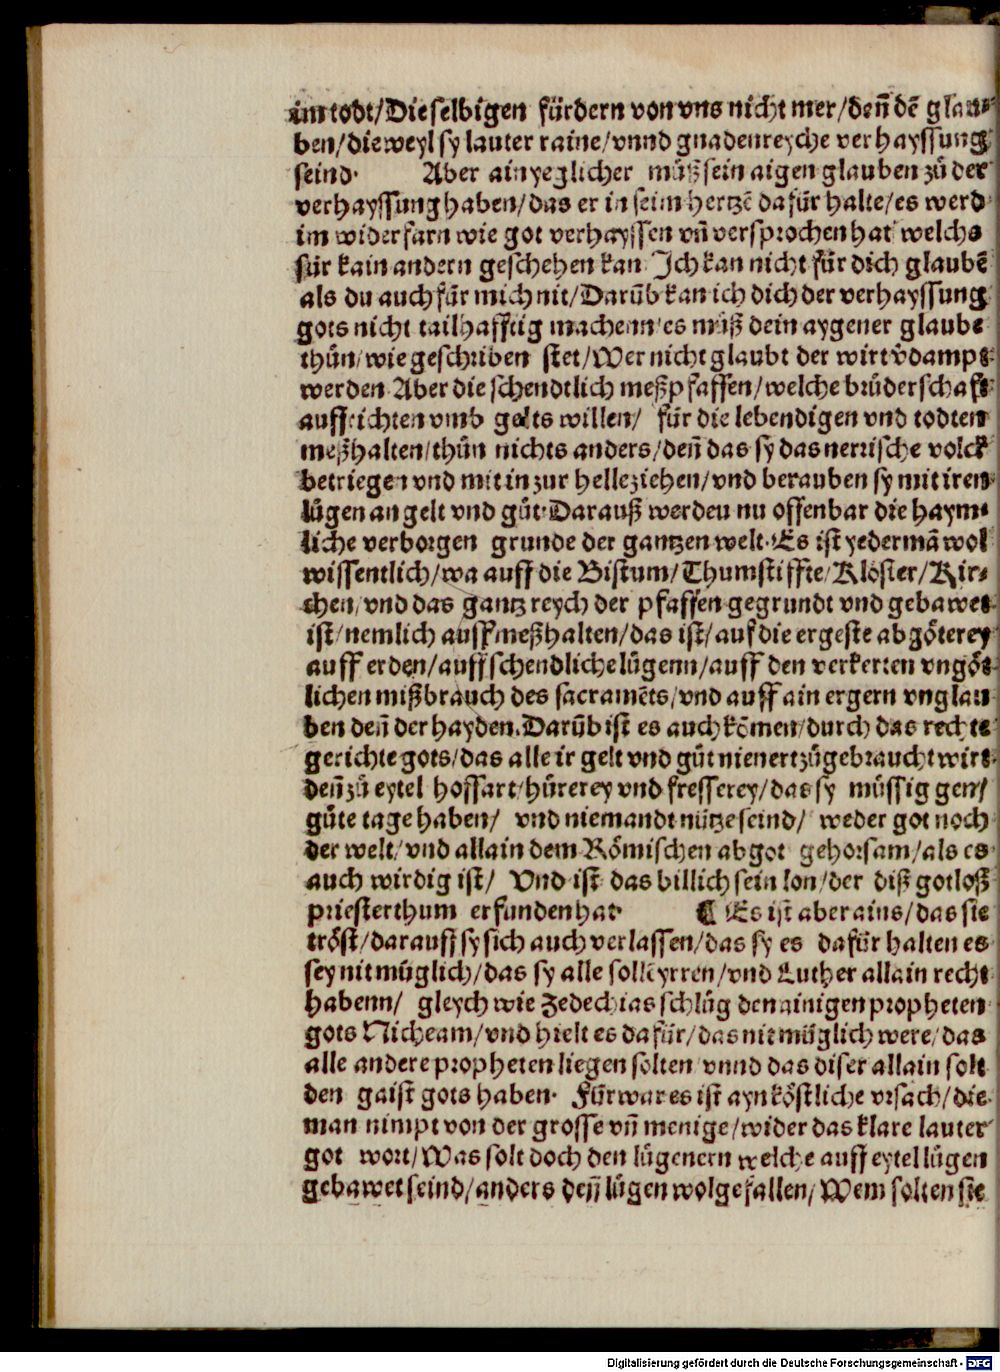 im todt/Die selbigen fürdern von vns nicht mer/deñ dē glau⸗
ben/die weyl sy lauter raine/vnnd gnadenreyche verhayssung
seind. Aber ain yeglicher můß sein aigen glauben zů der
verhayssung haben/das er in seim hertzē dafür halte/es werd
im widerfarn wie got verhayssen vñ versprochen hat welchs
für kain andern geschehen kan Ich kan nicht für dich glaubē
als du auch für mich nit/Darūb kan ich dich der verhayssung
gots nicht tailhafftig machenn es můß dein aygener glaube
thůn/wie geschriben stet/Wer nicht glaubt der wirt v̄dampt
werden Aber die schendtlich meßpfaffen/welche brůderschaft
auffrichten vmb gelts willen/ für die lebendigen vnd todten
meßhalten/thůn nichts anders/deñ das sy das nerrische volck
betriegen vnd mit in zur helle ziehen/vnd berauben sy mit iren
lügen an gelt vnd gůt. Darauß werden nu offenbar die haym⸗
liche verborgen grunde der gantzen welt. Es ist yedermā wol
wissentlich/wa auff die Bistum/Thumstiffte/Klöster/Kir⸗
chen/vnd das gantz reych der pfaffen gegrundt vnd gebawet
ist/nemlich auff meßhalten/das ist/auf die ergeste abgöterey
auff erden/auff schendliche lügenn/auff den verkerten vngöt⸗
lichen mißbrauch des sacramēts/vnd auff ain ergern vnglau
ben deñ der hayden. Darūb ist es auch kōmen/durch das rechte
gerichte gots/das alle ir gelt vnd gůt nienert zů gebraucht wirt
deñ zů eytel hoffart/hůrerey vnd fresserey/das sy müssig gen/
gůte tage haben/ vnd niemandt nütze seind/ weder got noch
der welt/vnd allain dem Römischen abgot gehorsam/als es
auch wirdig ist/ Vnd ist das billich sein lon/der diß gotloß
priesterthum erfunden hat. ¶ Es ist aber ains/das sie
tröst/darauff sy sich auch verlassen/das sy es dafür halten es
sey nit müglich/das sy alle sollē yrren/vnd Luther allain recht
habenn/ gleych wie Zedechias schlůg den ainigen propheten
gots Micheam/vnd hielt es dafür/das nit müglich were/das
alle andere propheten liegen solten vnnd das diser allain solt
den gaist gots haben. Fürwar es ist ayn köstliche vrsach/die
man nimpt von der grosse vñ menige/wider das klare lauter
got wort/Was solt doch den lügenern welche auff eytel lügen
gebawet seind/anders deñ lügen wolgefallen/Wem solten sie
Digitalisierung gefördert durch die Deutsche Forschungsgemeinschaft - DFG